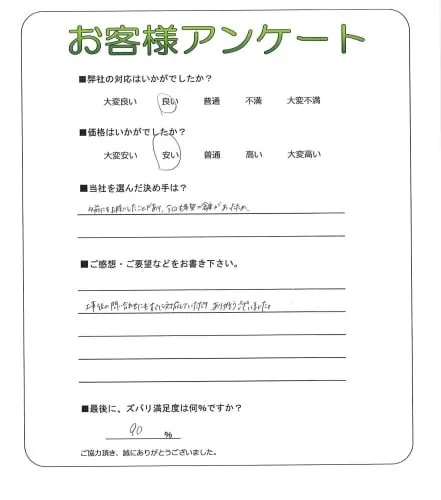 お客様アンケート
■弊社の対応はいかがでしたか？
大変良い 良い 普通 不満 大変不満
■価格はいかがでしたか？
大変安い 安い 普通 高い 大変高い
■当社を選んだ決め手は？
以前にもお願いしたことがあり、今回も希望の金額があったため。
■ご感想・ご要望などをお書き下さい。
工事後の問い合わせにもすぐに対応していただき ありがとうございました。
■最後に、ズバリ満足度は何％ですか？
90 ％
ご協力頂き、誠にありがとうございました。